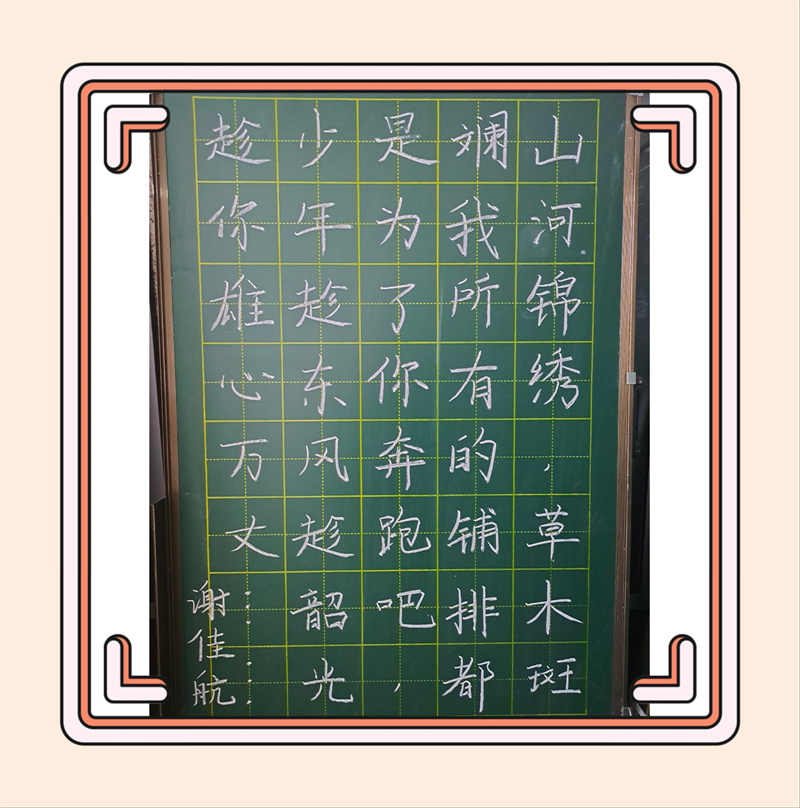 山河锦绣，草木斑
斓我所有的铺排都
是为了你奔跑吧，
少年趁东风趁韶光
趁你雄心万丈
谢佳航